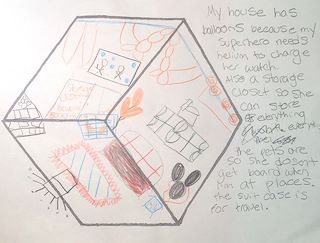 My house has
balloons because my
Superhero needs
helium to charge
her watch.
Also a storage
closet so she
can store
everything
the pets are
so she doesnt
get board when
I'm at places.
the suit case is
for travel.